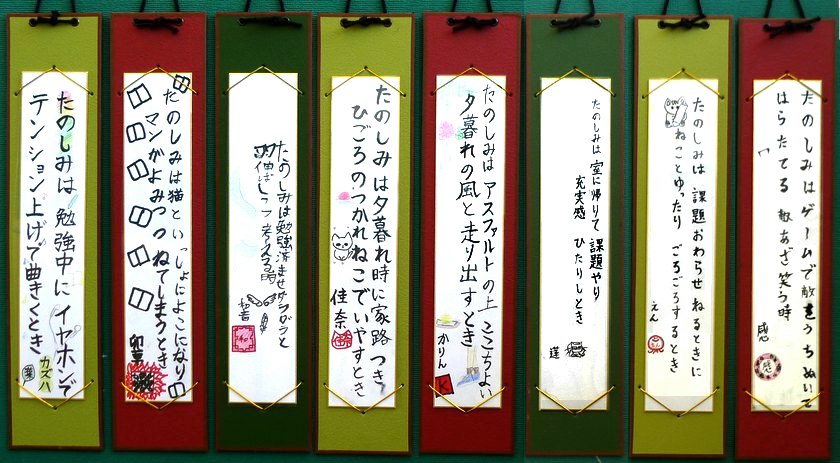 たのしみはゲームで敵をうちぬいて
はらたてる 敵あざ笑う時
感
たのしみは 課題おわらせ ねるときに
ねことゆったり ごろごろするとき
えん
たのしみは 室に帰りて 課題やり
充実感 ひたりしとき
蓮
たのしみは アスファルトの上 ここちよい
夕暮れの風と走り出すとき
かりん
K
たのしみは夕暮れ時に家路つき
ひごろのつかれねこでいやすとき
佳奈
たのしみは勉強済ませサラダラと
しつつ 考える時
たのしみは猫といっしょによこになり
マンガよみつつ ねてしまうとき
卯
たのしみは 勉強中に イヤホンで
テンション上げて曲きくとき
カズハ